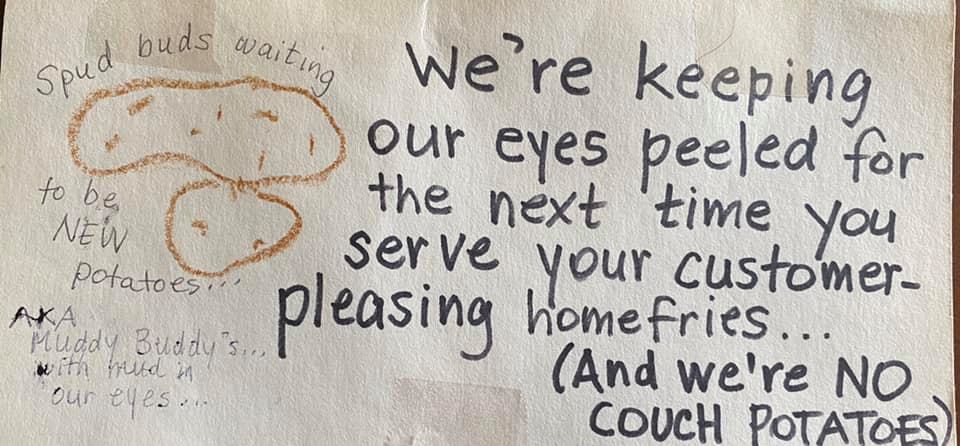 Spud buds waiting
to be
NEW
potatoes...
AKA
Muddy Buddy's...
with mud in
our eyes...
We're keeping
our eyes peeled for
the next time you
serve your customer-
pleasing homefries...
(And we're NO
COUCH POTATOES)